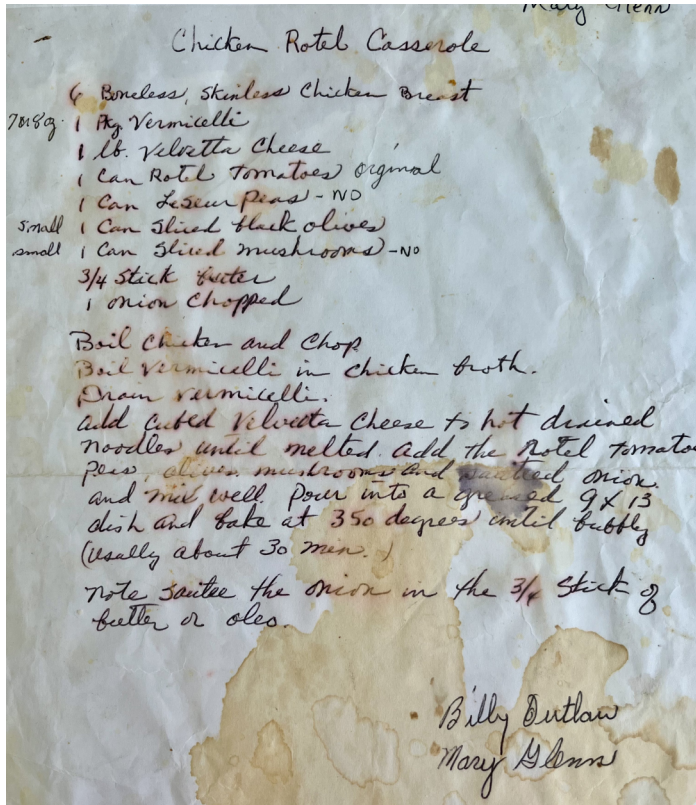 Mary Glenn
Chicken Rotel Casserole
6 Boneless, Skinless Chicken Breast
7 or 8 oz. 1 Pkg. Vermicelli
1 lb. Velvetta Cheese
1 Can Rotel Tomatoes orginal
1 Can Leseur Peas - NO
small 1 Can Sliced black olives
small 1 Can Sliced mushrooms - NO
3/4 Stick butter
1 onion Chopped
Boil Chicken and Chop
Boil Vermicelli in chicken broth.
Drain Vermicelli.
add cubed Velvetta Cheese to hot drained
noodles until melted. add the Rotel tomato
peas, olives, mushrooms and sauteed onion
and mix well. Pour into a greased 9 X 13
dish and bake at 350 degrees until bubbly
(usually about 30 min.)
note sautee the onion in the 3/4 Stick of
butter or oleo.
Billy Outlaw
Mary Glenn